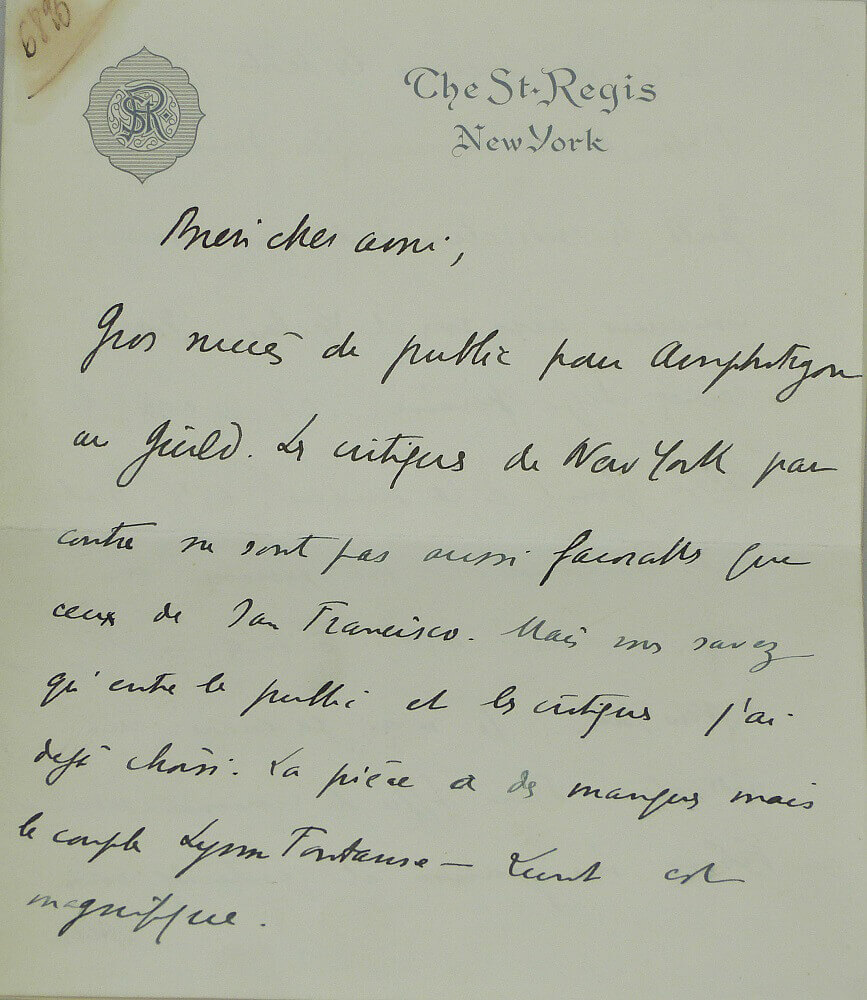 6829
SR
The St. Regis
New York
Merci cher ami,
Gros succès de public pour Amphitryon
au Guild. Les critiques de New York par
contre ne sont pas aussi favorables que
ceux de San Francisco. Mais vous savez
qu'entre le public et les critiques j'ai
déjà choisi. La pièce a des manques mais
le couple Lynn Fontanne – Lunt est
magnifique.